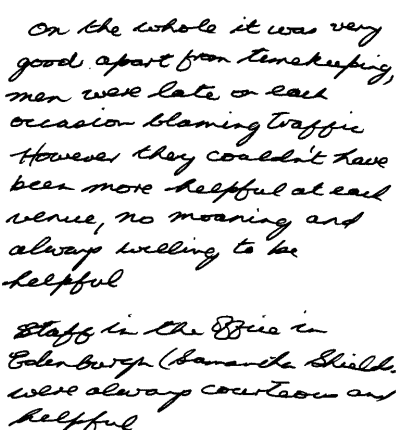 On the whole it was very
good apart from timekeeping,
men were late on each
occasion blaming traffic
However they couldn't have
been more helpful at each
venue, no moaning and
always willing to be
helpful
Staff in the Office in
Edenburgh (Samantha Shields.
were always courteous and
helpful